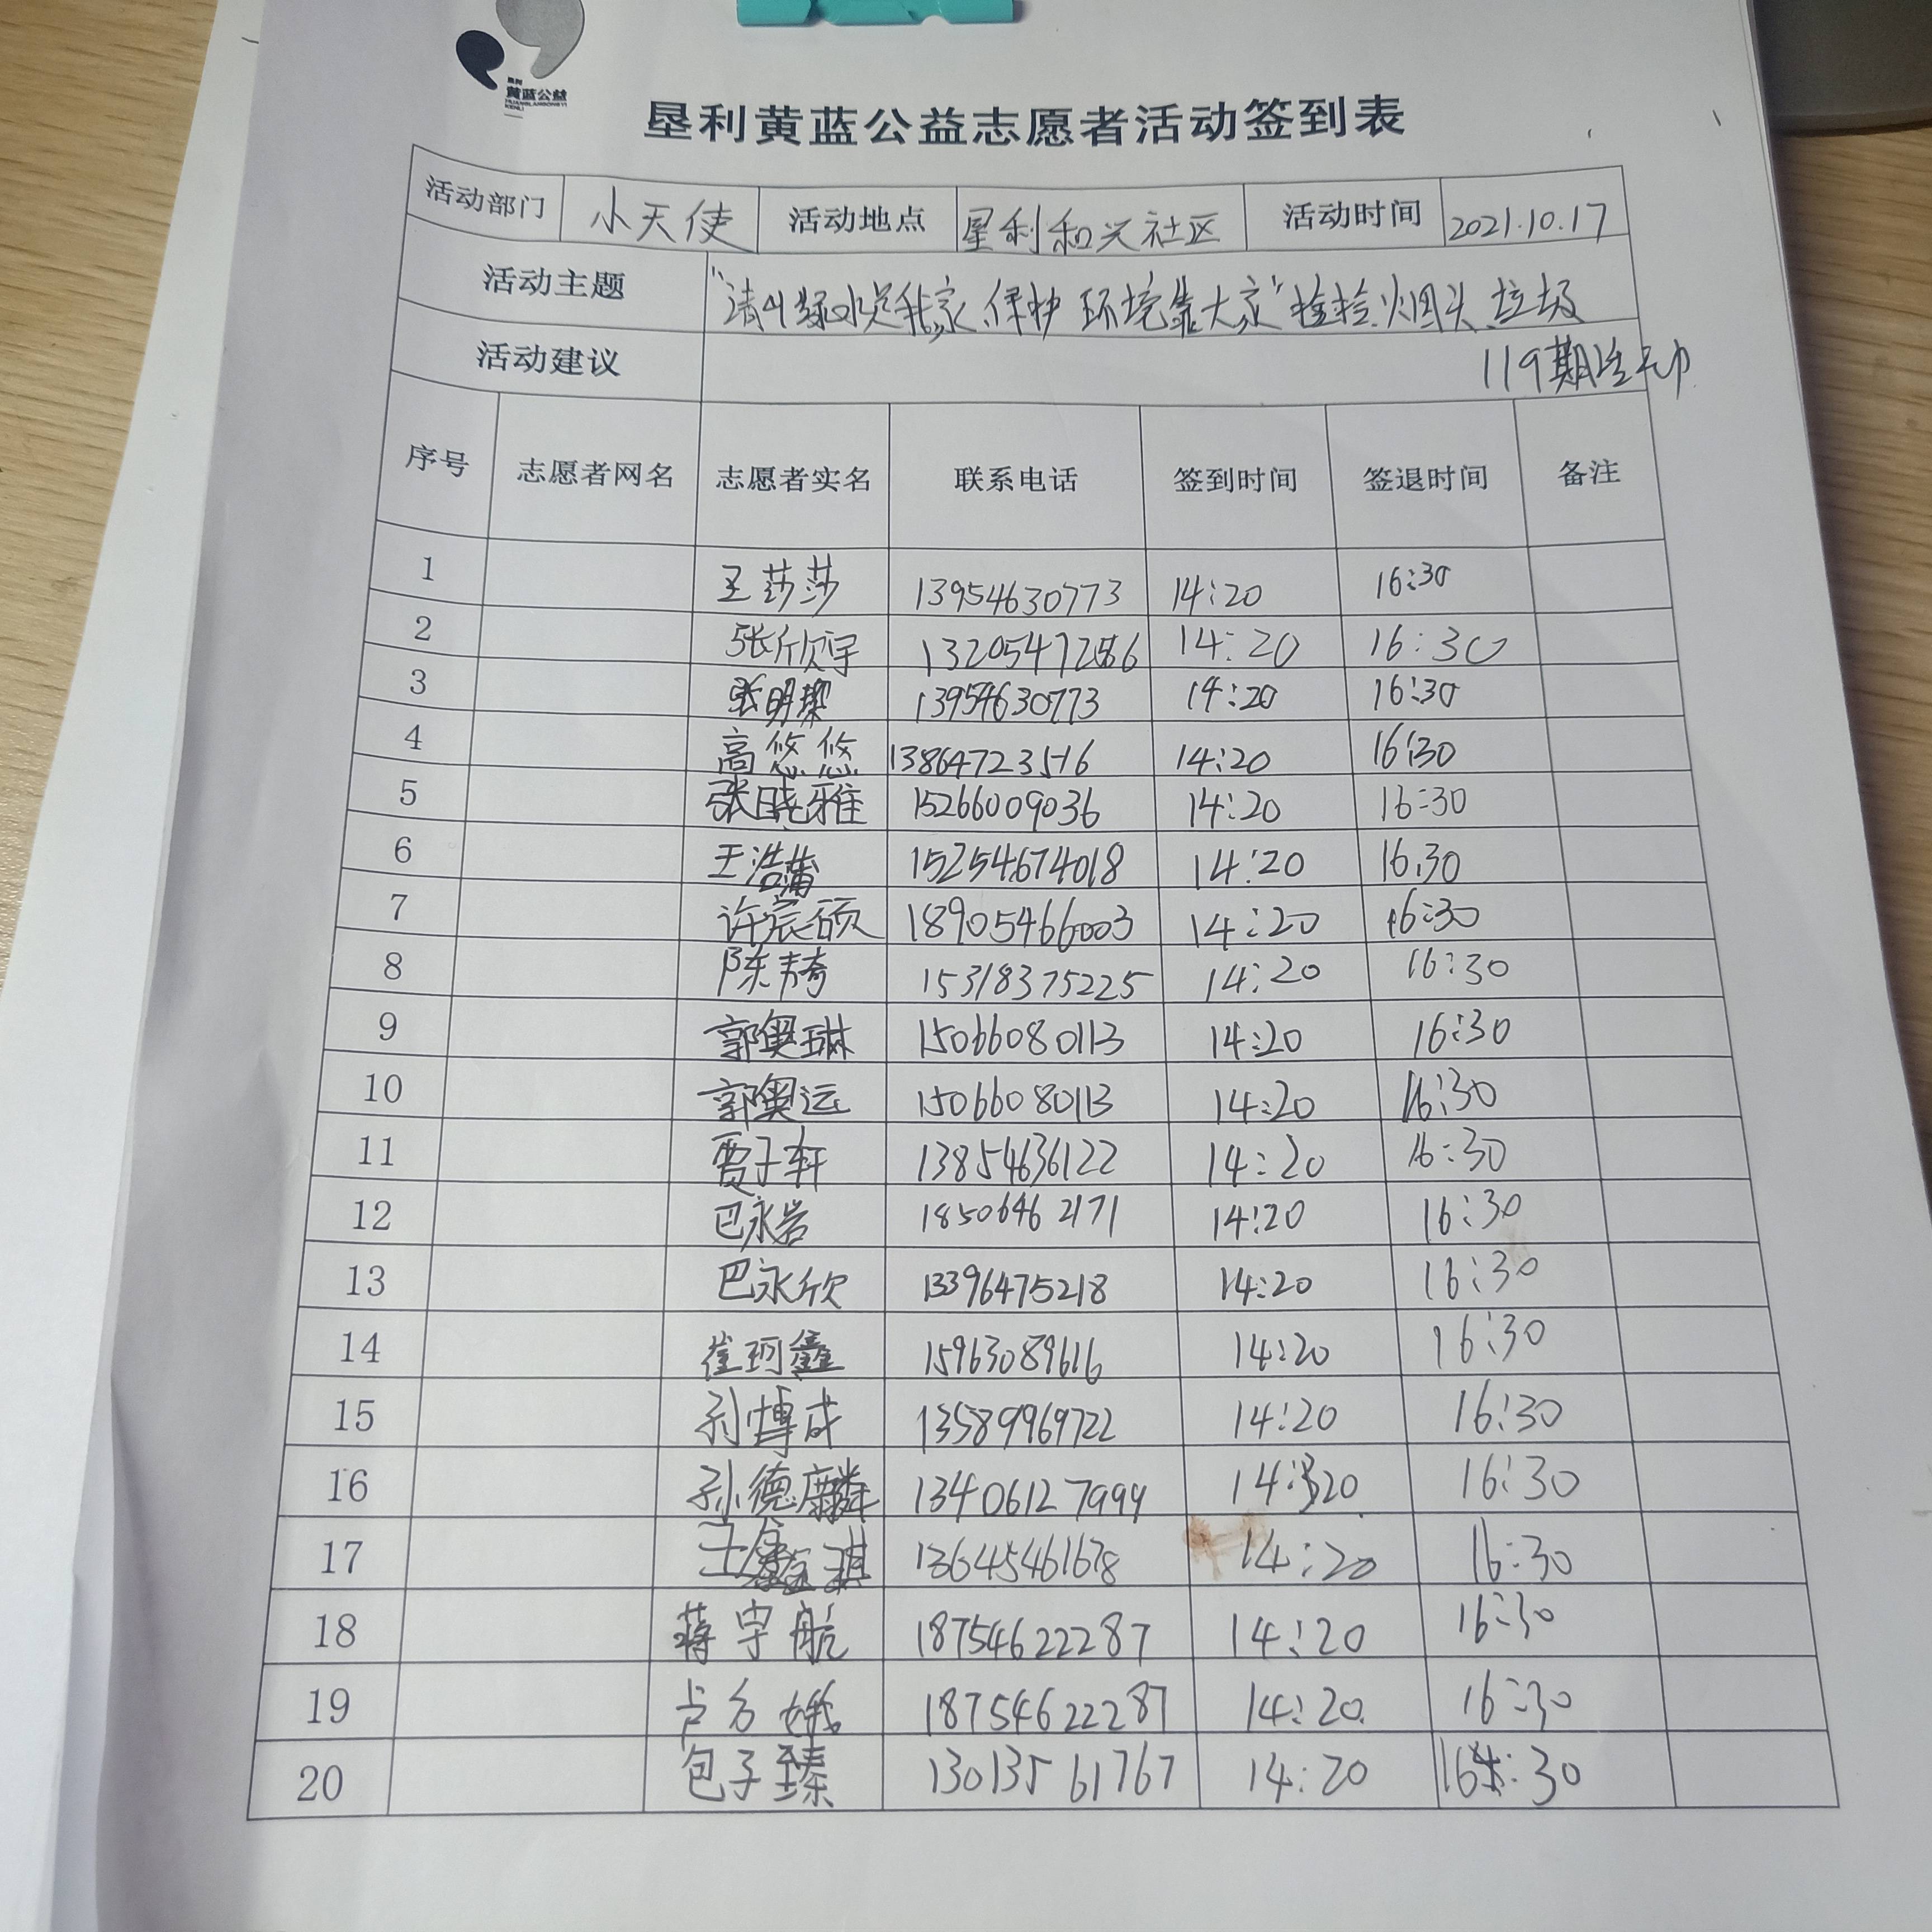 垦利
黄蓝公益
垦利黄蓝公益志愿者活动签到表
活动部门 小天使 活动地点 垦利和兴社区 活动时间 2021.10.17
活动主题 "清山绿水是我家,保护环境靠大家"捡捡烟头垃圾
活动建议 119期活动
序号 志愿者网名 志愿者实名 联系电话 签到时间 签退时间 备注
1 王莎莎 13954630773 14:20 16:30
2 张欣宇 14:20 16:30
3 张明 13954630773 14:20 16:30
4 高悠悠 13864723516 14:20 16:30
5 张晓雅 15266009036 14:20 16:30
6 王浩 15254674018 14:20 16:30
7 许宸硕 18905466003 14:20 16:30
8 陈 15318375225 14:20 16:30
9 郭奥琳 15066080113 14:20 16:30
10 郭奥运 15066080113 14:20 16:30
11 贾子轩 13854636122 14:20 16:30
12 巴永岩 18506462171 14:20 16:30
13 巴永欣 13396475218 14:20 16:30
14 崔珂鑫 15963089616 14:20 16:30
15 孙博成 13589969722 14:20 16:30
16 孙德麟 13406127999 14:20 16:30
17 王鑫琪 13645461678 14:20 16:30
18 蒋宇航 18754622287 14:20 16:30
19 卢方娥 18754622287 14:20 16:30
20 包子臻 13013561767 14:20 16:30